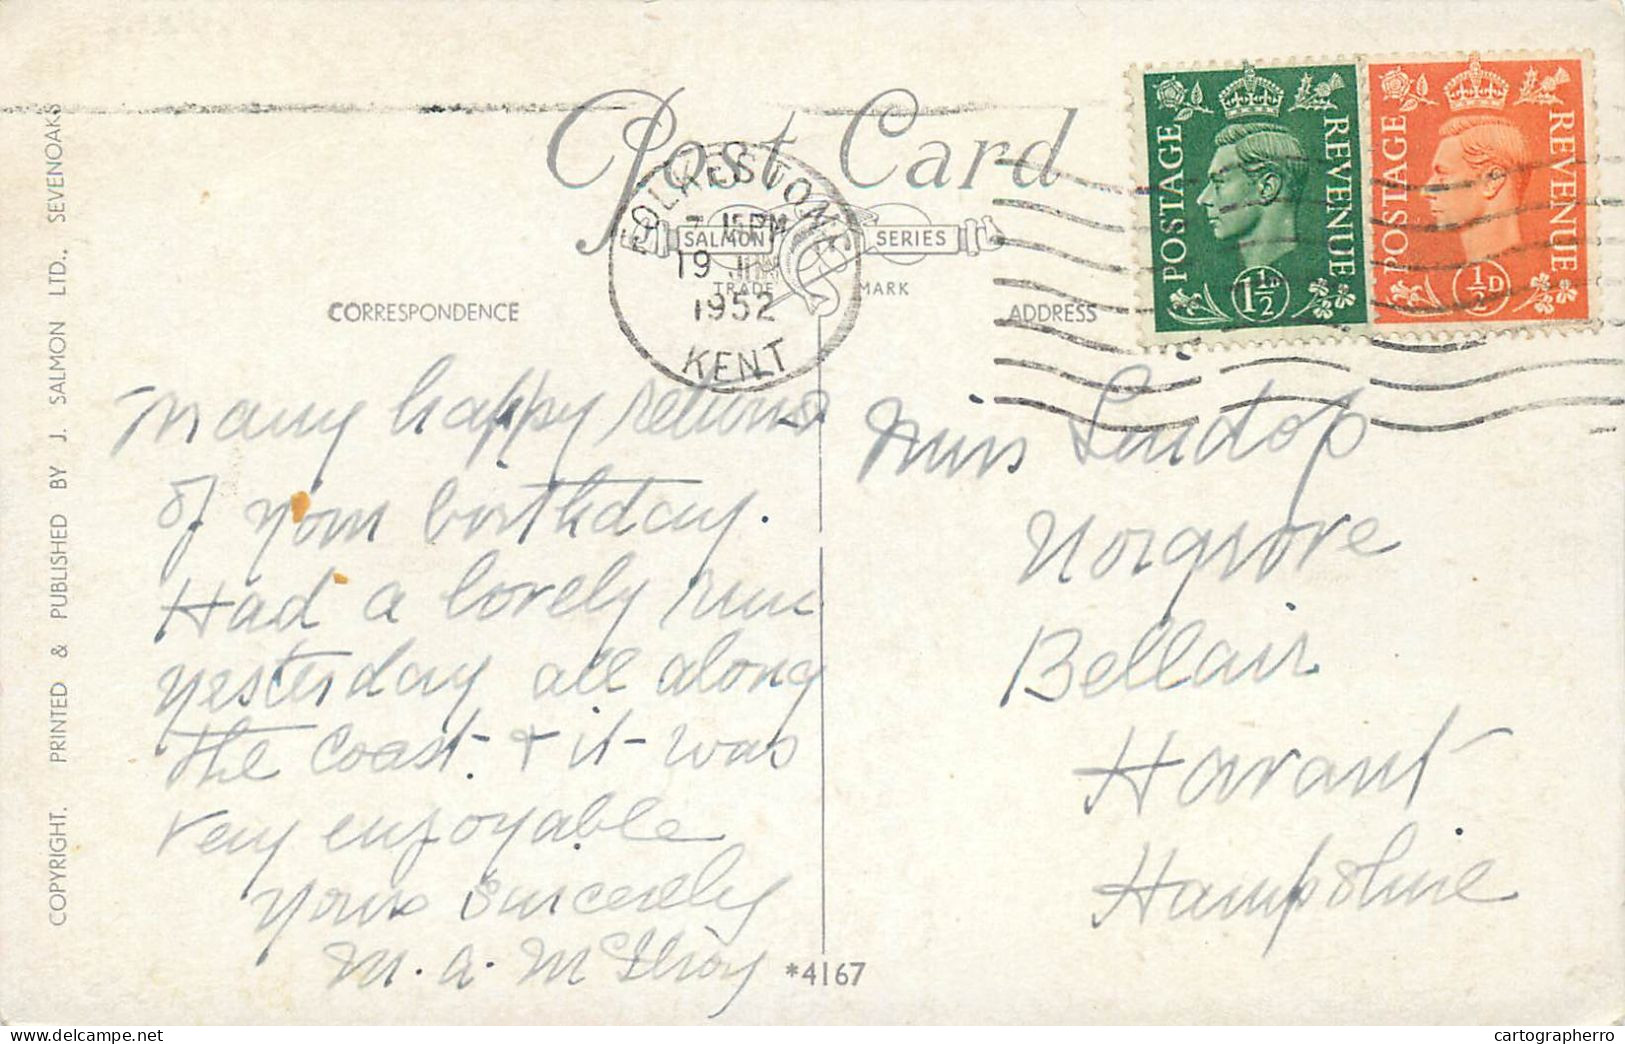 Post Card
SALMON SERIES
TRADE MARK
FOLKESTONE
7 15 PM
19 JUN
1952
KENT
POSTAGE REVENUE
1½D
POSTAGE REVENUE
½D
CORRESPONDENCE
ADDRESS
Many happy returns
of your birthday.
Had a lovely run
yesterday all along
the coast. + it was
very enjoyable
Yours Sincerely
M. A. McIlroy
Miss Lindop
Norgrove
Bellair
Havant
Hampshire
*4167
COPYRIGHT. PRINTED & PUBLISHED BY J. SALMON LTD., SEVENOAKS
cartographerro